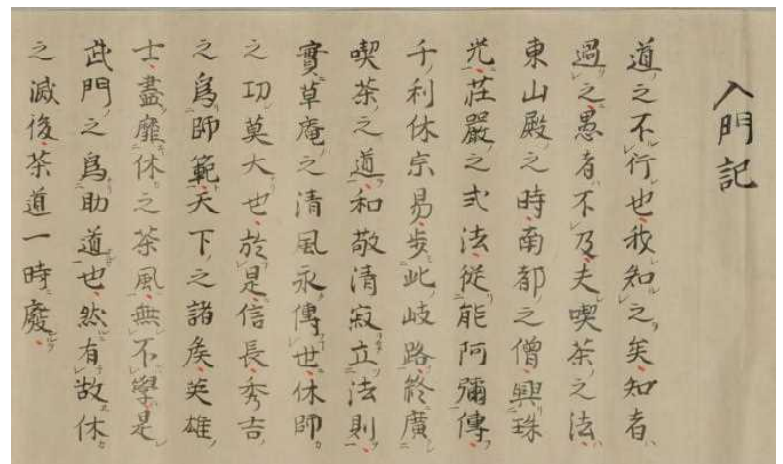 入門記
道之不行也我知之矣知者
過之愚者不及夫喫茶之法
東山殿之時南都之僧興珠
光莊嚴之式法從能阿彌傳
千利休宗易歩此岐路終廣
喫茶之道和敬清寂立法則
實草庵之清風永傳世休師
之功莫大也於是信長秀吉
之爲師範天下之諸侯英雄
士盡靡休之茶風無不學是
武門之爲助道也然有故休
之滅後茶道一時廢